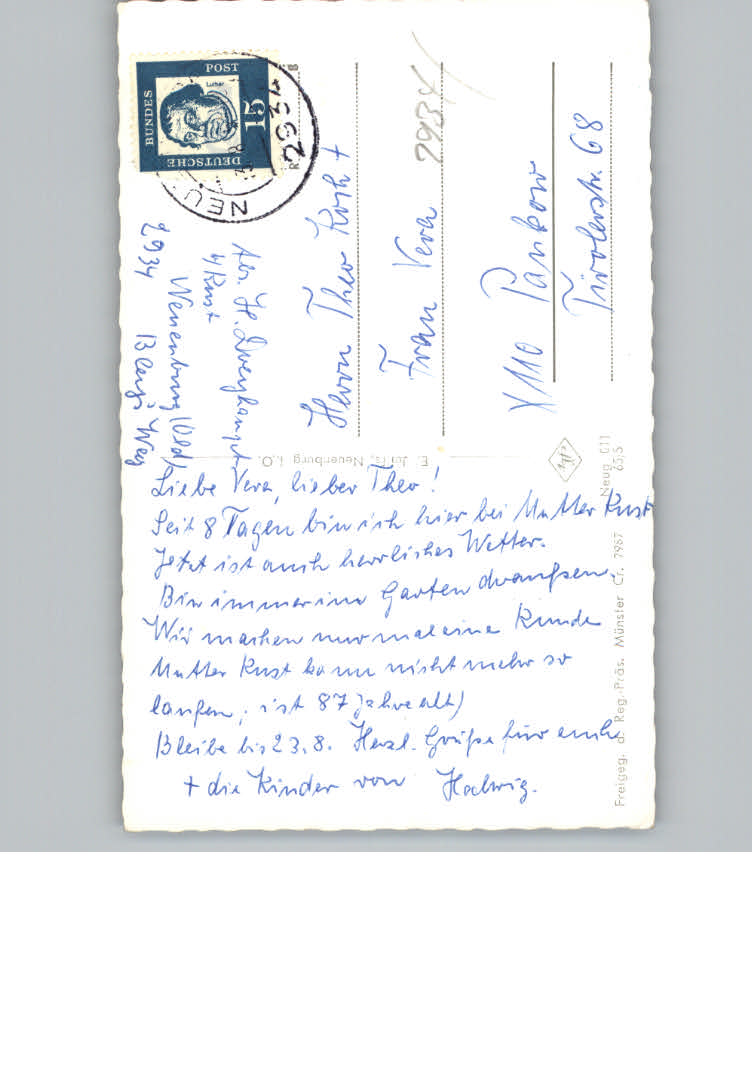 Liebe Vera, lieber Theo!
Seit 8 Tagen bin ich hier bei Mutter Kust
Jetzt ist auch herrliches Wetter.
Bin immer im Garten draußen.
Wir machen nur mal eine Runde
Mutter Kust kann nicht mehr so
laufen, ist 87 Jahre alt)
Bleibe bis 23.8. Herzl. Grüße für euch
+ die Kinder von Hedwig.
Abs. H.
b/Kust
2934 Neuenburg/Old
Weg
Herrn Theo Koch +
Frau Vera
X110 Pankow
Tirolerstr. 68
2934
DEUTSCHE BUNDES POST
15
Luther
2934
NEU
E. Neuenburg i.O.
Neug. 011
65/5
Freigeg. d. Reg.-Präs. Münster Cr. 7967